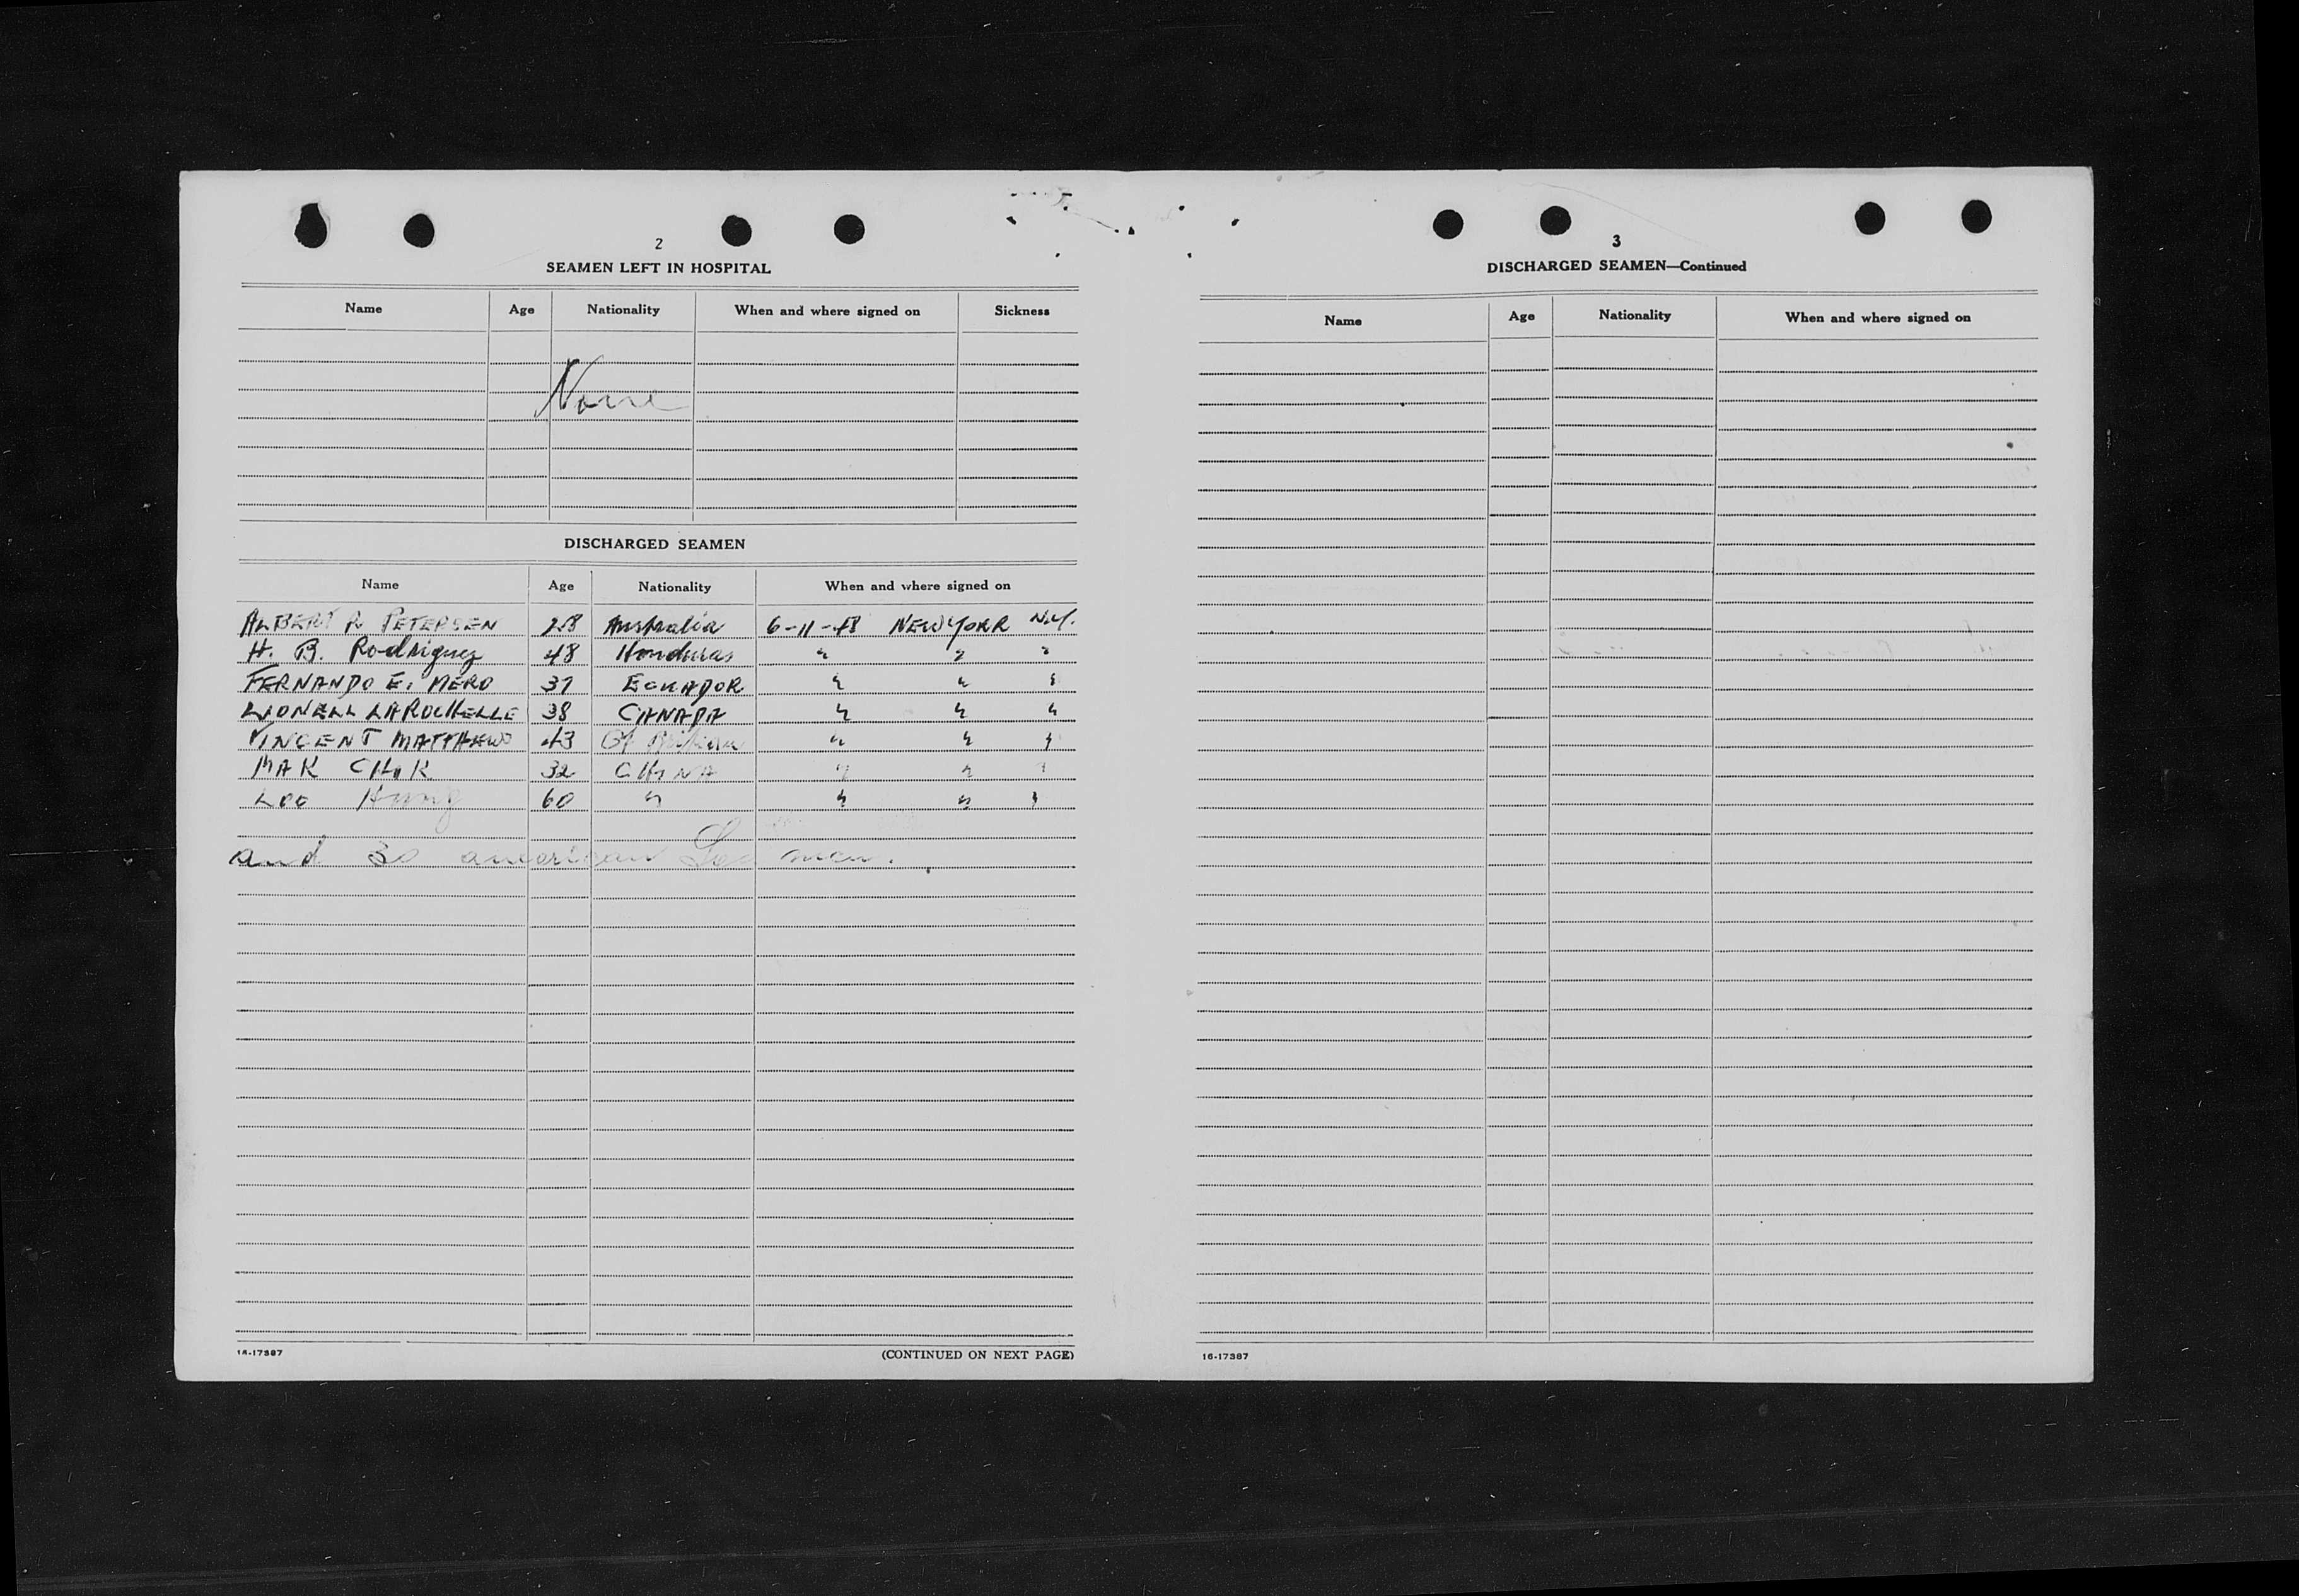 2
SEAMEN LEFT IN HOSPITAL
Name Age Nationality When and where signed on Sickness
None
DISCHARGED SEAMEN
Name Age Nationality When and where signed on
ALBERT P. PETERSEN 28 Australia 6-11-48 NEW YORK N.Y.
H. B. Rodriguez 48 Honduras " " "
FERNANDO E. MERO 37 ECUADOR " " "
LIONELL LAROCHELLE 38 CANADA " " "
VINCENT MATTHEWS 43 Gt Britian " " "
MAK CHOK 32 CHINA " " "
LOO Hung 60 " " " "
and 30 american Sea men.
16-17387
(CONTINUED ON NEXT PAGE)
3
DISCHARGED SEAMEN—Continued
Name Age Nationality When and where signed on
16-17387